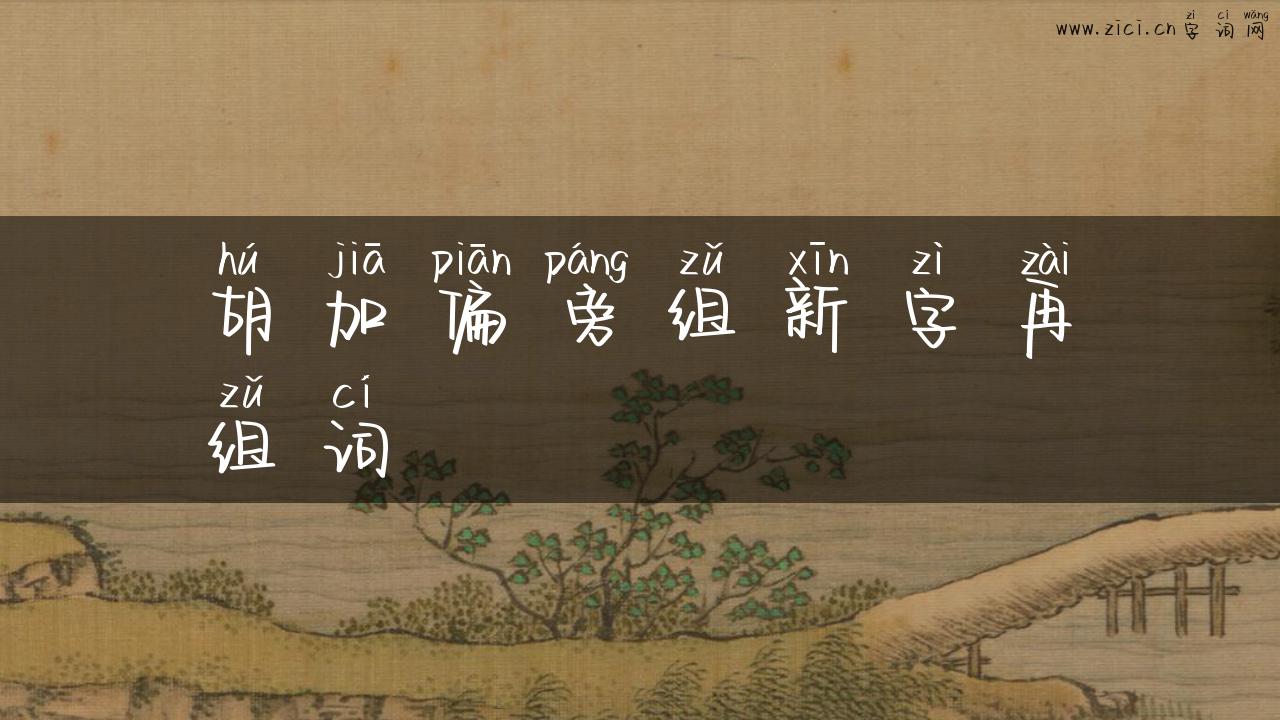 zì cí wǎng
www.zici.cn 字词网
hú jiā piān páng zǔ xīn zì zài
胡加偏旁组新字再
zǔ cí
组词